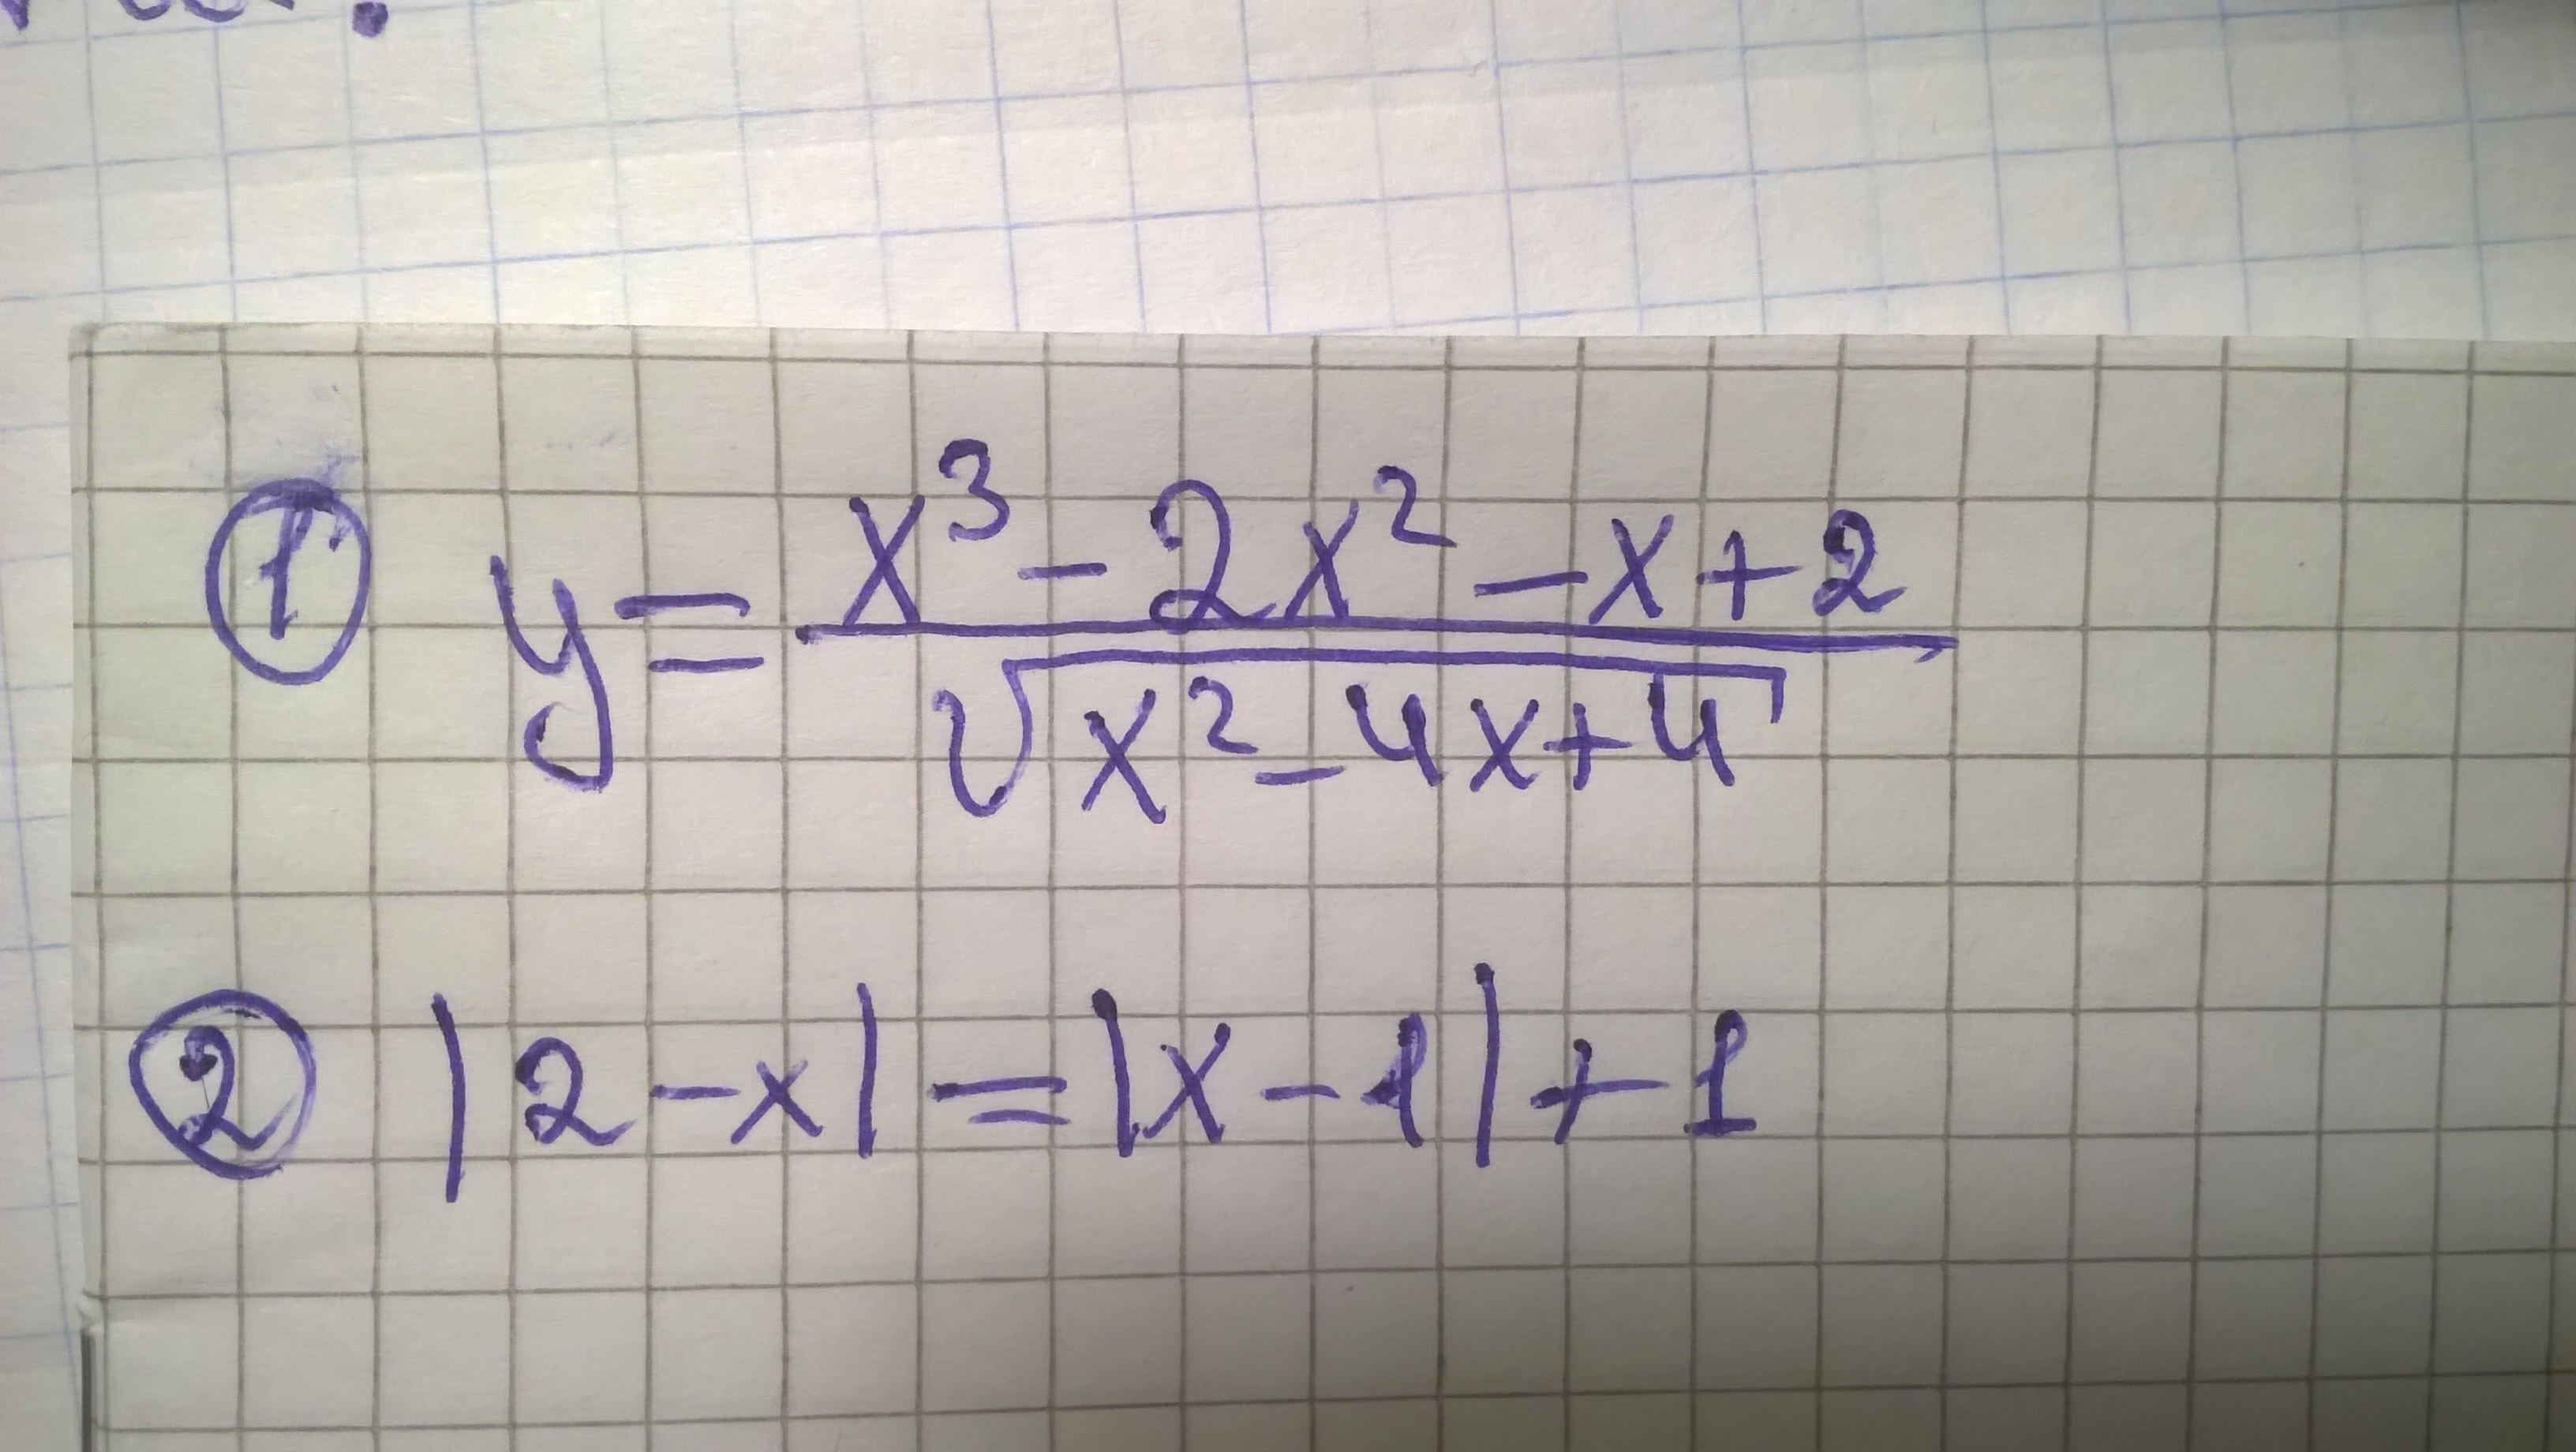 ① y = (x³ - 2x² - x + 2) / √(x² - 4x + 4)
② |2 - x| = |x - 1| + 1